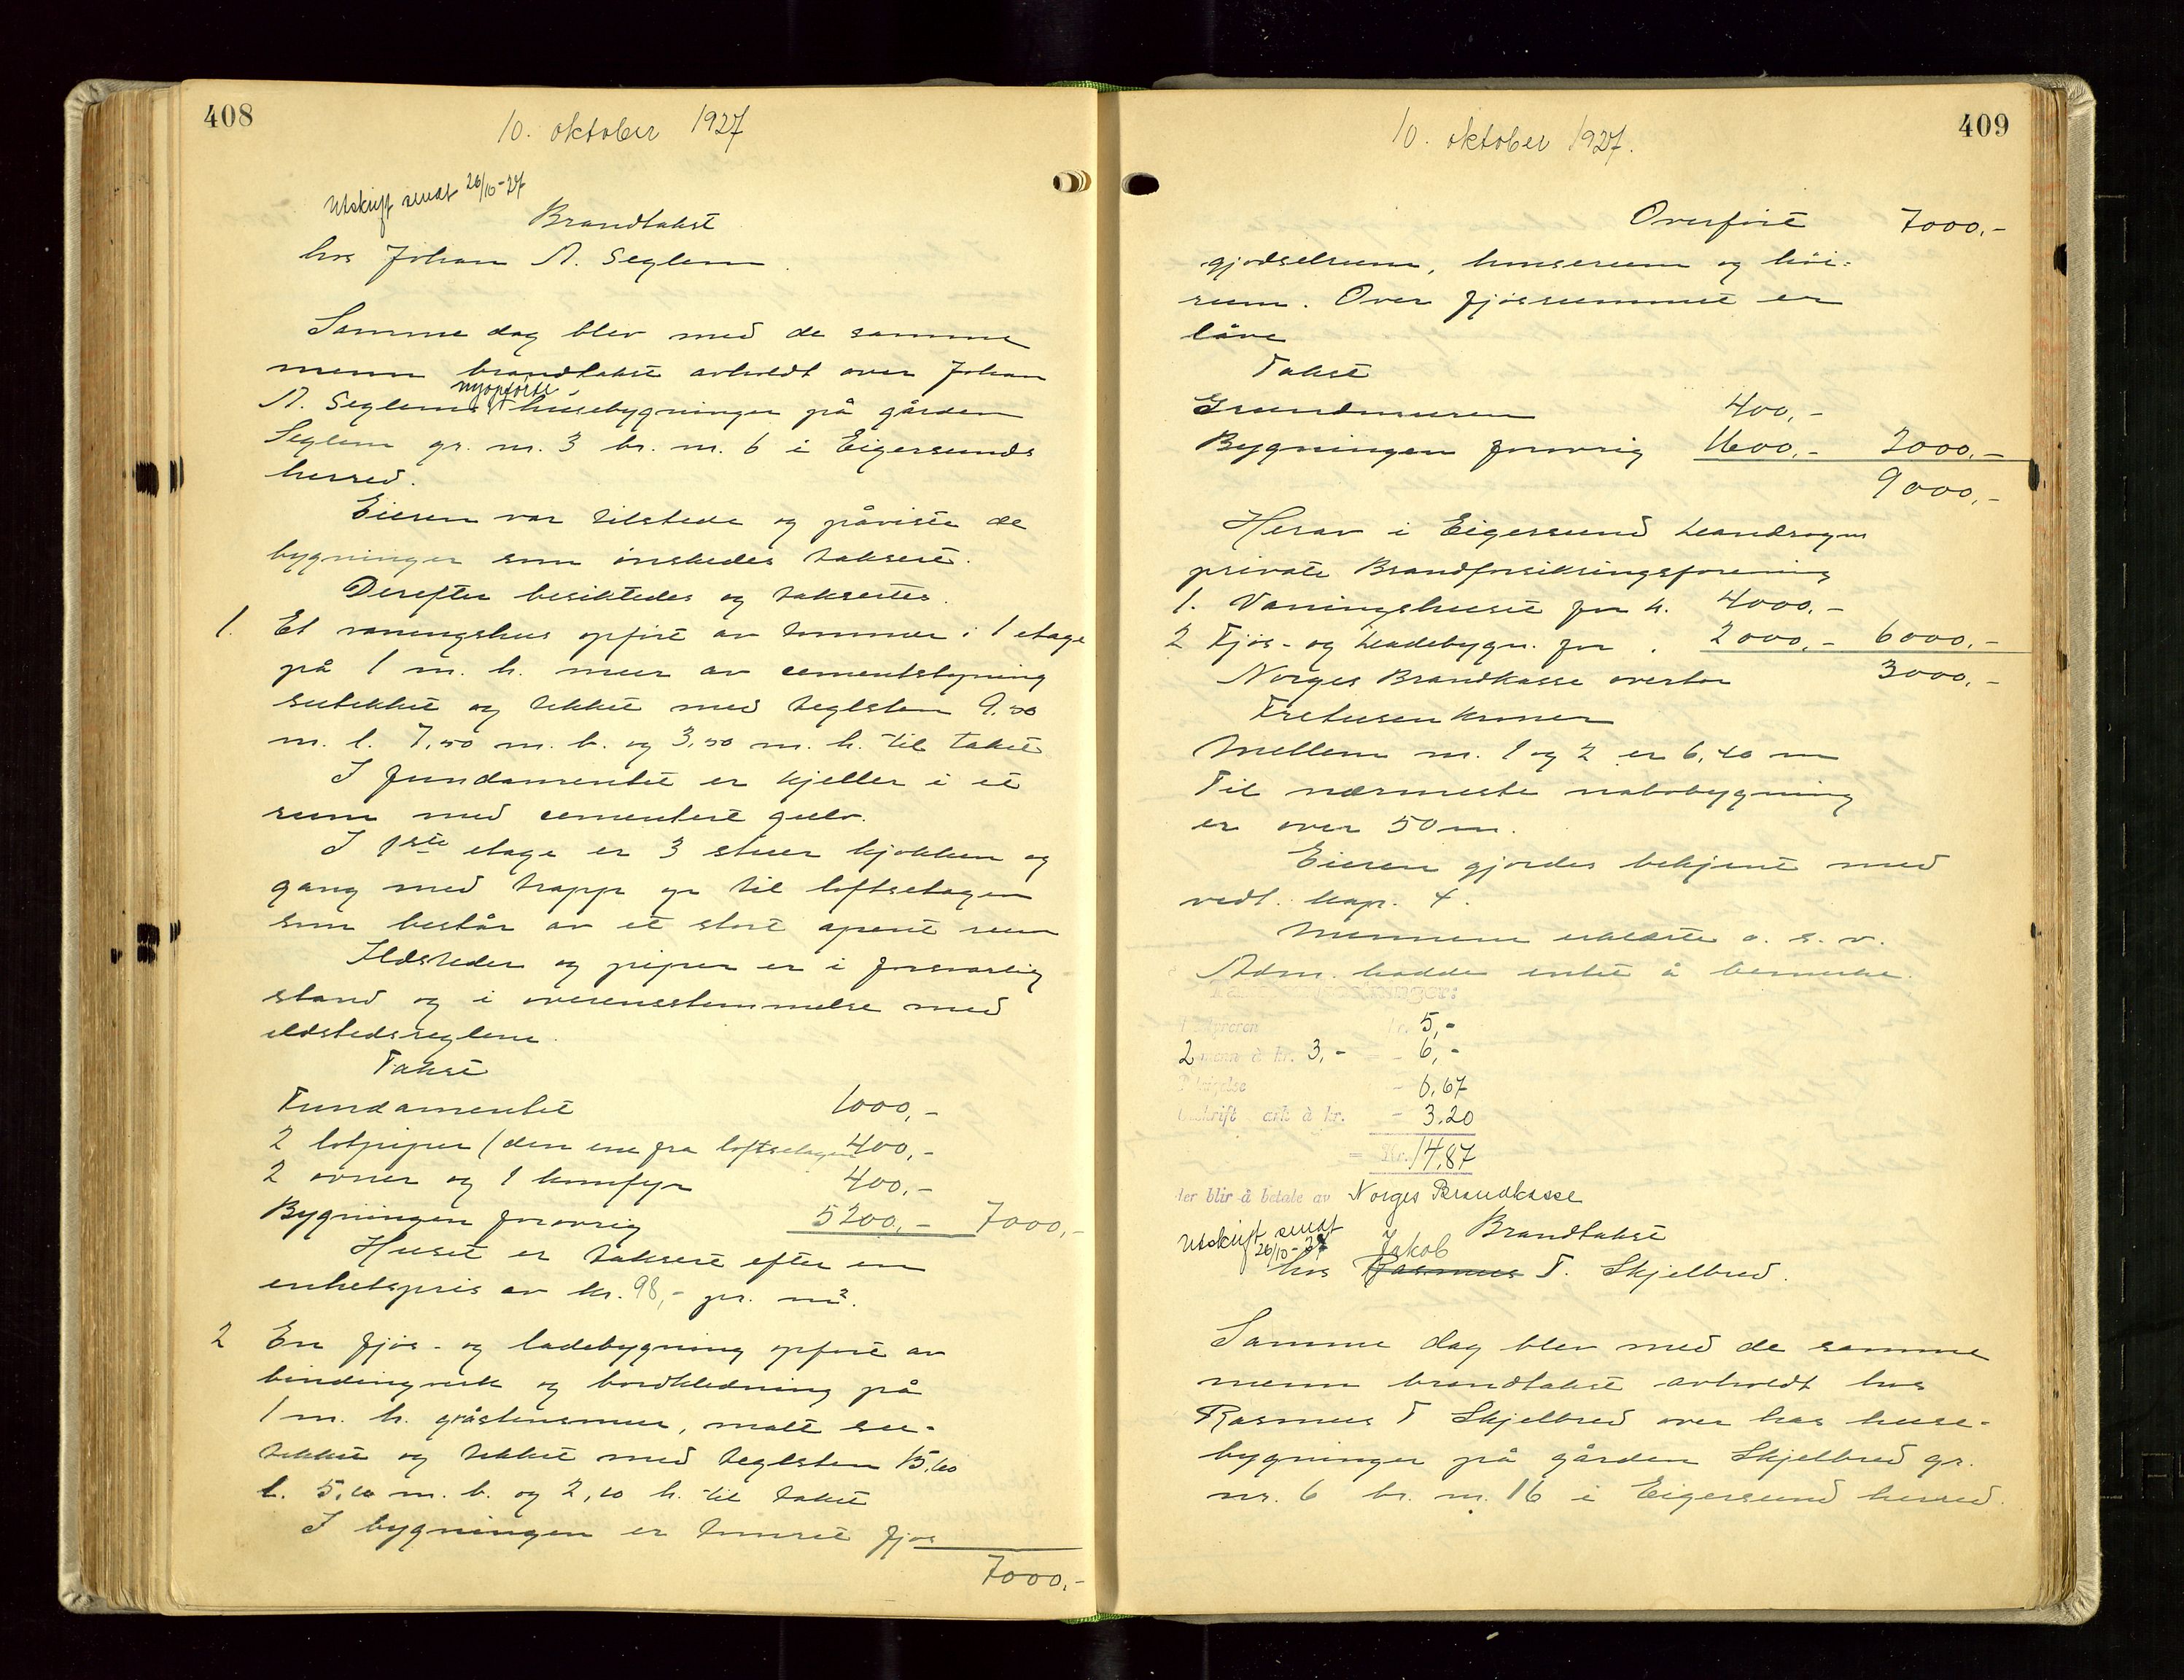 408
10. oktober 1927
Utskrift sendt 26/10-27
Brandtakst
hos Johan A. Seglem.
Samme dag blev med de samme
menn brandtakst avholdt over Johan
A. Seglems nyopførte husebygninger på gården
Seglem gr. nr. 3 br. nr. 6 i Eigersunds
herred.
Eieren var tilstede og påviste de
bygninger som ønskedes taksert.
Derefter besiktedes og taksertes.
1. Et vaningshus opført av tømmer i 1 etage
på 1 m. h. mur av cementstøpning
sutekket og tekket med teglsten 9.50
m. l. 7,50 m. b. og 3,50 m. h. til taket
I fundamentet er kjeller i et
rum med cementert gulv.
I 1ste etage er 3 stuer kjøkken og
gang med trapp op til loftsetagen
som består av et stort åpent rum
Ildsteder og piper er i forsvarlig
stand og i overensstemmelse med
ildstedsreglene.
Takst
Fundamentet 1000,-
2 løtpiper (den ene fra loftsetagen 400,-
2 ovner og 1 komfyr 400,-
Bygningen forøvrig 5200,- 7000,-
Huset er taksert efter en
enhetspris av kr. 98,- pr. m².
2 En fjøs- og ladebygning opført av
bindingverk og bordkledning på
1 m. h. gråstensmur, malt su-
tekket og tekket med teglsten 15,60
l. 5,10 m. b. og 2,10 h. til taket
I bygningen er tømret fjøs
7000,-
409
10. oktober 1927.
Overført 7000,-
gjødselrum, hønserum og høi-
rum. Over fjøsrummet er
låve
Takst
Grundmuren 400,-
Bygningen forøvrig 1600,- 2000,-
9000,-
Herav i Eigersund Landsogns
private Brandforsikringsforening
1. Vaningshuset for kr. 4000,-
2 Fjøs- og Ladebygn. for . 2000,- 6000,-
Norges Brandkasse overtar 3000,-
Tretusen kroner
Mellem nr. 1 og 2 er 6,40 m
Til nærmeste nabobygning
er over 50 m.
Eieren gjordes bekjent med
vedt. kap. 4.
Mennene erklærte o. s. v.
Adm. hadde intet å bemerke.
kr. 5,-
2 menn à kr. 3,- = - 6,-
- 0,67
Utskrift ark à kr. - 3.20
= Kr. 14,87
der blir å betale av Norges Brandkasse
Utskrift sendt
26/10-27
Brandtakst
Jakob
hos Rasmus T. Skjelbred.
Samme dag blev med de samme
menn brandtakst avholdt hos
Rasmus T Skjelbred over has huse-
bygninger på gården Skjelbred gr.
nr. 6 br. nr. 16 i Eigersund herred.